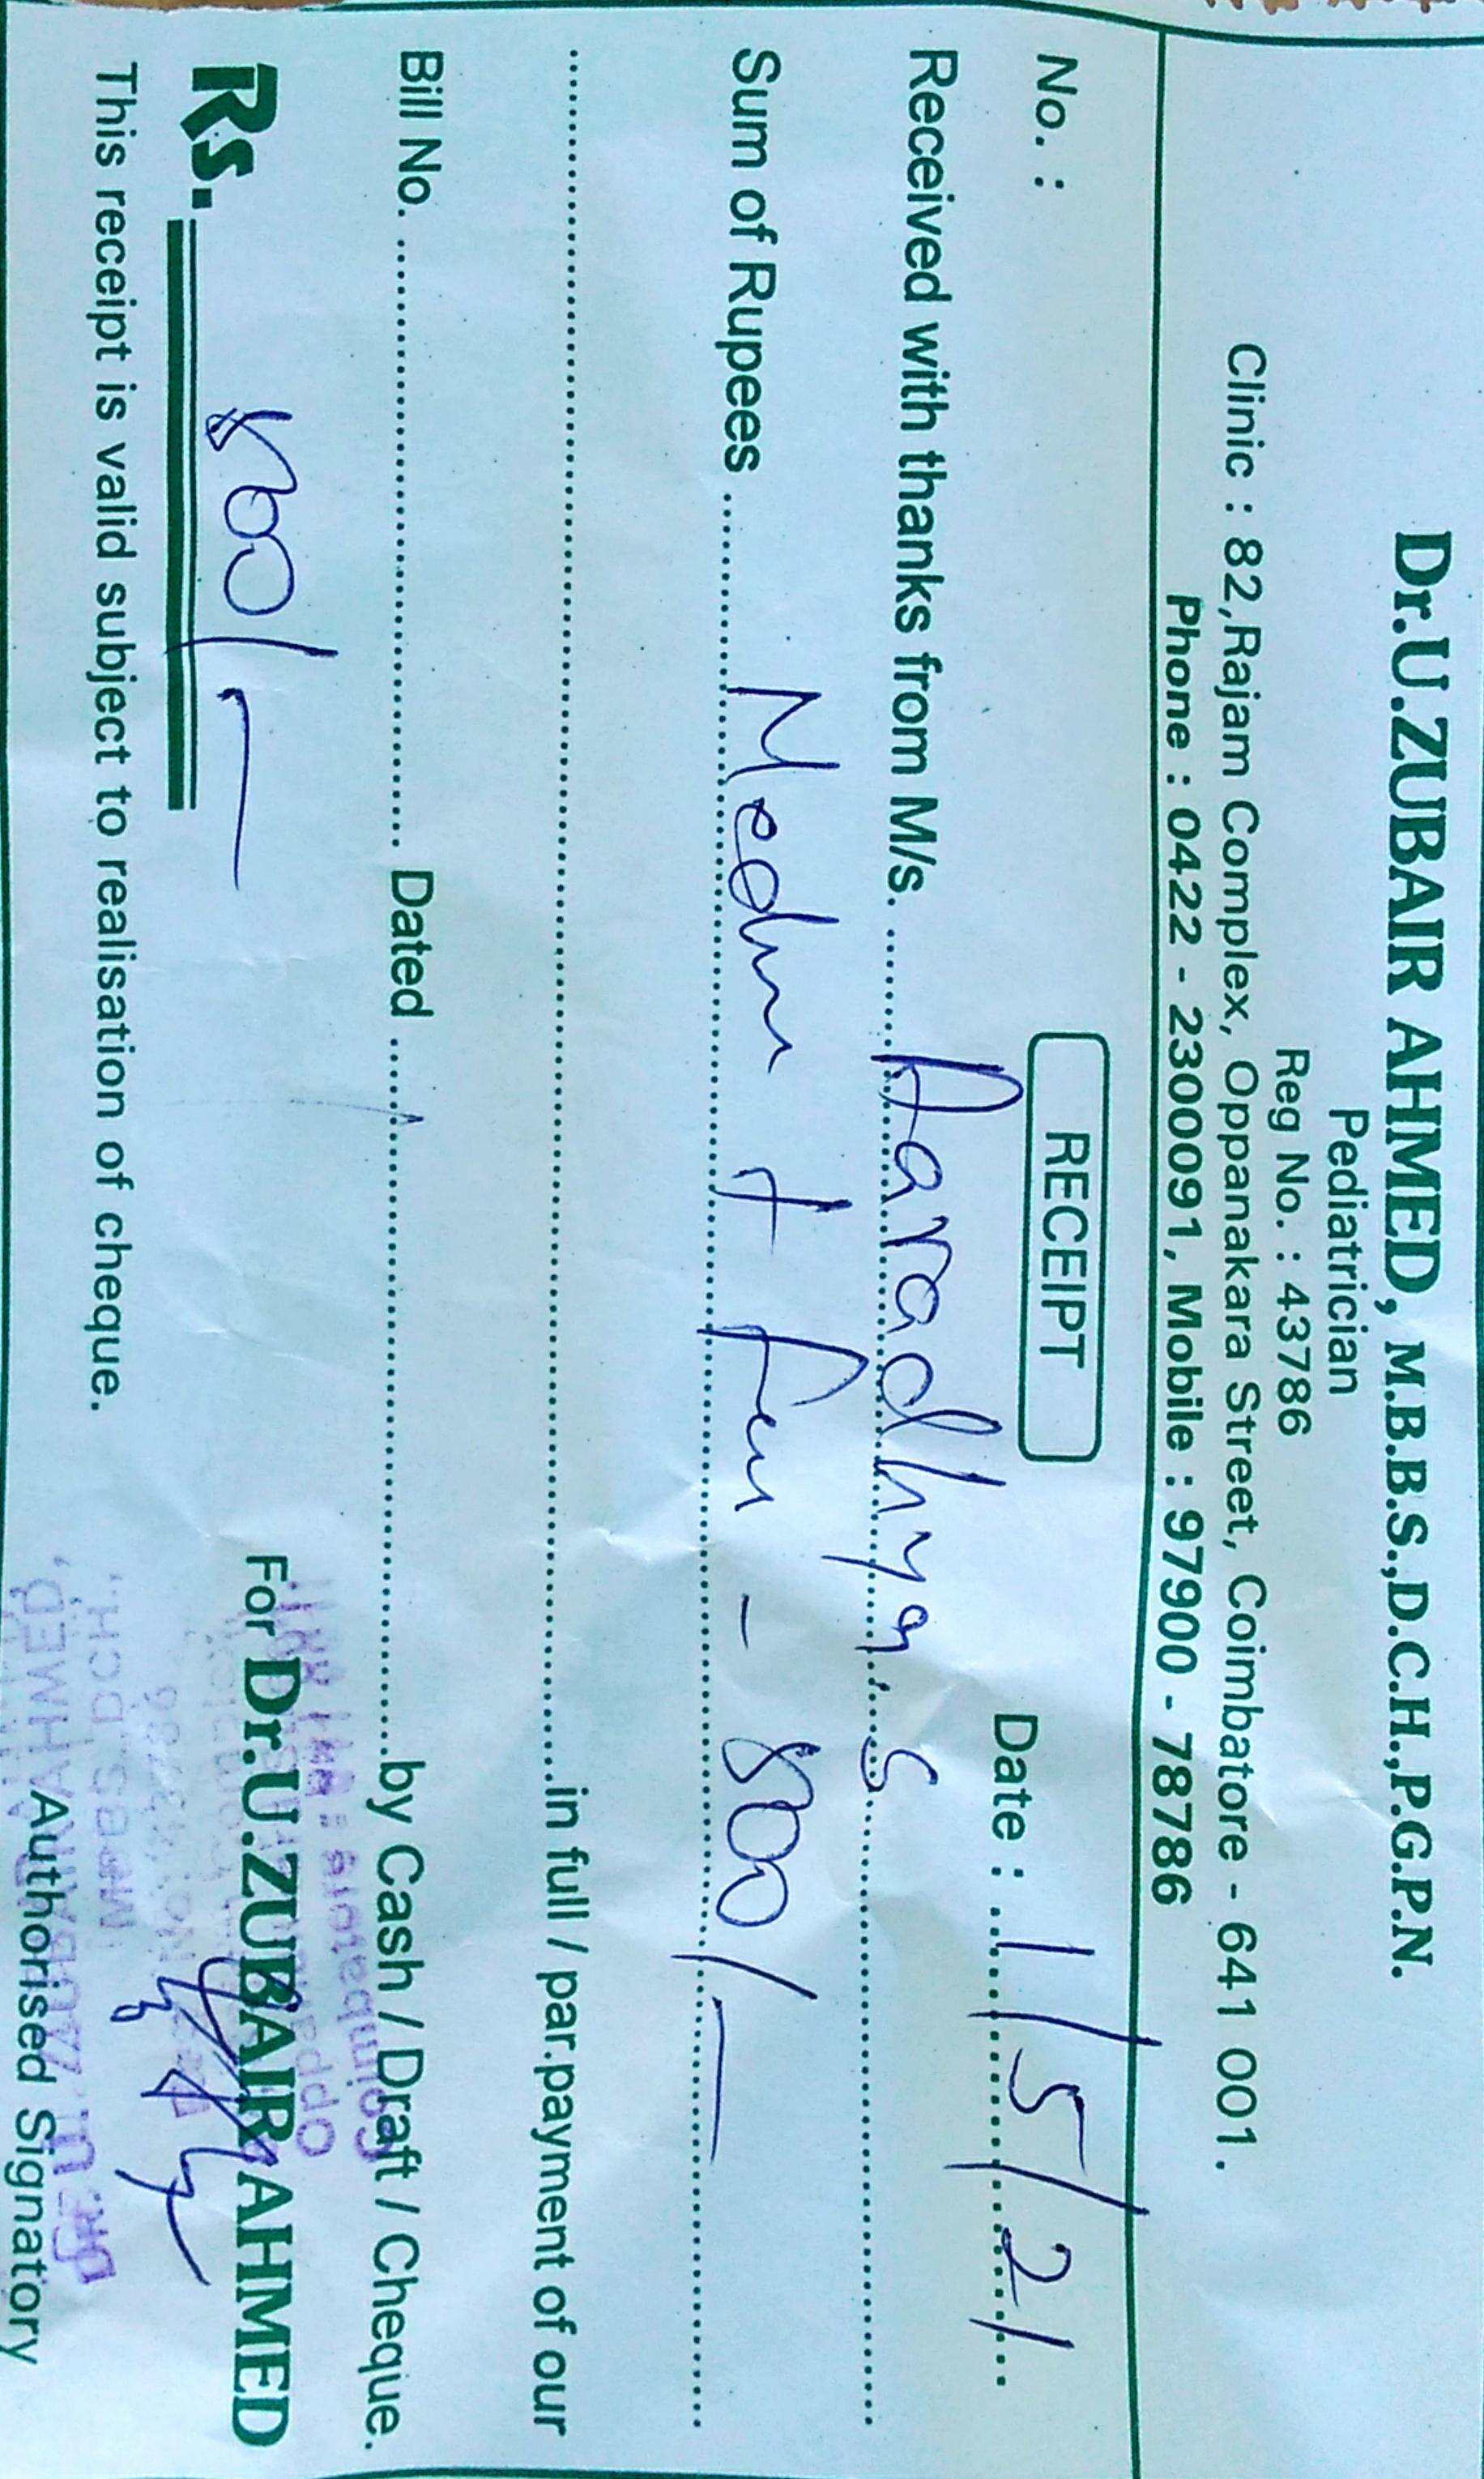 Dr.U.ZUBAIR AHMED, M.B.B.S.,D.C.H.,P.G.P.N.
Pediatrician
Reg No. : 43786
Clinic : 82,Rajam Complex, Oppanakara Street, Coimbatore - 641 001.
Phone : 0422 - 2300091, Mobile : 97900 - 78786
RECEIPT
No. : Date : 1/5/21
Received with thanks from M/s. Aaradhya. S
Sum of Rupees + - 800/-
in full / par.payment of our
Bill No. Dated by Cash / Draft / Cheque.
Rs. 800/-
For Dr.U.ZUBAIR AHMED
This receipt is valid subject to realisation of cheque.
Authorised Signatory